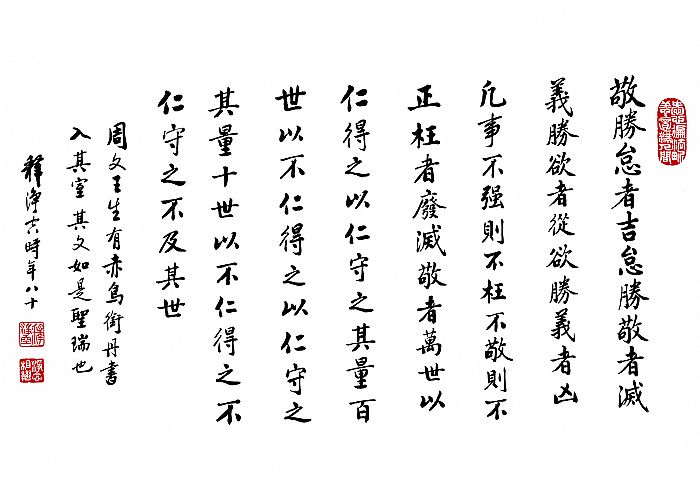 敬勝怠者吉怠勝敬者滅
義勝欲者從欲勝義者凶
凡事不强則不枉不敬則不
正枉者廢滅敬者萬世以
仁得之以仁守之其量百
世以不仁得之以仁守之
其量十世以不仁得之不
仁守之不及其世
周文王生有赤烏銜丹書
入其室其文如是聖瑞也
釋淨空時年八十